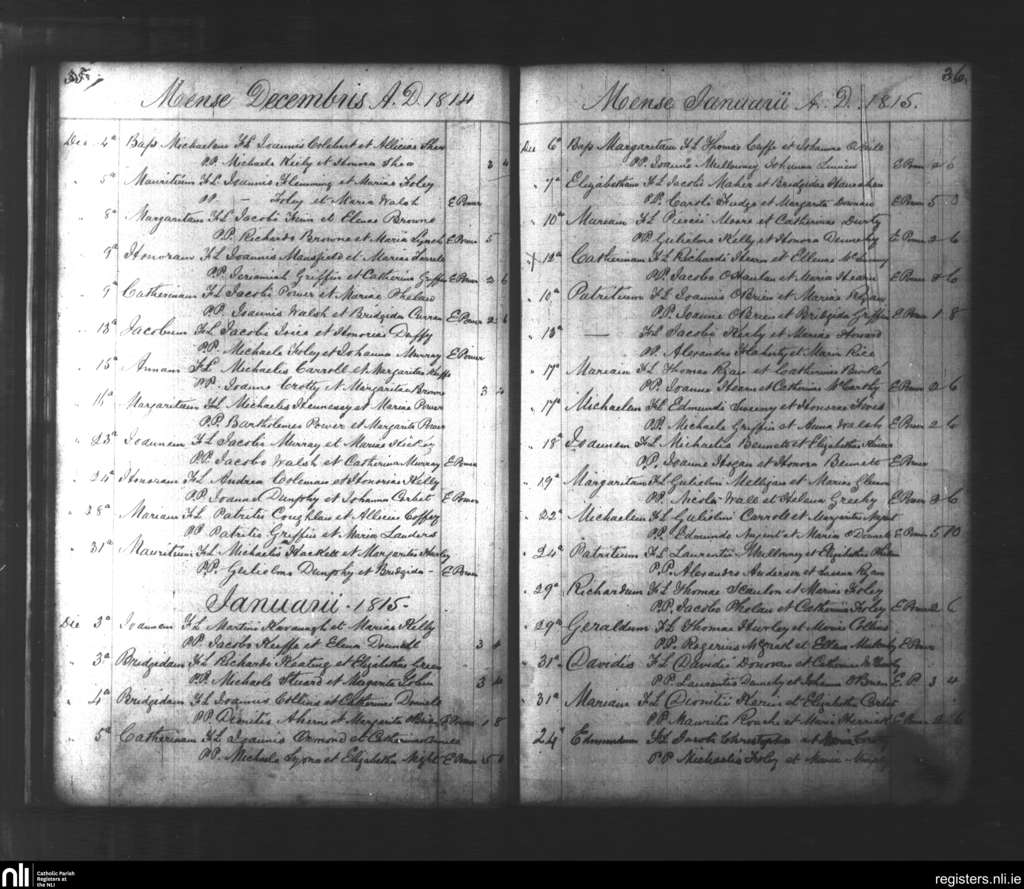 35
Mense Decembris A.D. 1814
Die 4ª Baps Michaelem F.L. Joannis Colebert et Alliciae Shea
P.P. Michaele Kiely et Honora Shea 3 4
" 5ª Mauritium F.L. Joannis Flemming et Mariae Foley
P.P. — Foley et Maria Walsh E Power
" 8ª Margaritam F.L. Jacobi et Elenae Browne
P.P. Richardo Browne et Maria Lynch E Power 5
" 9ª Honoram F.L. Joannis Mansfield et Mariae
P.P. Jeremiah Griffin et Catherina Griffin E Power 2 6
" 9ª Catherinam F.L. Jacobi Power et Mariae Phelan
P.P. Joannis Walsh et Bridgida Curran E Power 2 6
" 13ª Jacobum F.L. Jacobi et Honoriae Duffy
P.P. Michaele Foley et Johanna Murray E Power
" 15ª Annam F.L. Michaelis Carroll et Margaritae Keeffe
P.P. Joanne Crotty et Margarita Browne 3 4
" 16ª Margaritam F.L. Michaelis Hennessy et Mariae Power
P.P. Bartholomeo Power et Margarita Power
" 23ª Joannem F.L. Jacobi Murray et Mariae Hickey
P.P. Jacobo Walsh et Catherina Murray E Power
" 24ª Honoram F.L. Andrea Coleman et Honoriae Kelly
P.P. Joanne Dunphy et Johanna Corbet E Power
" 28ª Mariam F.L. Patritii Coughlan et Alliciae Coffey
P.P. Patritio Griffin et Maria Landers
" 31ª Mauritium F.L. Michaelis Hackett et Margarita Hurley
P.P. Gulielmo Dunphy et Bridgida — E Power
Januarii . 1815 .
Die 3ª Joannem F.L. Martini Kavanagh et Mariae Kelly
P.P. Jacobo Keeffe et Elena 3 4
" 3ª Bridgidam F.L. Richardi Keating et Elizabetha Green
P.P. Michaele Stuard et Margarita 3 4
" 4ª Bridgidam F.L. Joannis Collins et Catherinae
P.P. Dionitio Aherne et Margarita O'Brien E Power 1 8
" 5ª Catherinam F.L. Joannis Ormond et Catherinae
P.P. Michaele Lyons et Elizabetha E Power 5
36
Mense Januarii A. D. 1815.
Die 6ª Baps Margaritam F.L. Thomae Caffe et Johannae
P.P. Joanne Mullowney Johanna E Power 2 6
" 7ª Elizabetham F.L. Jacobi Maher et Bridgidae Hanrahan
P.P. Carolo Fudge et Margarita E Power 5
" 10ª Mariam F.L. Piercei Moore et Catherinae
P.P. Gulielmo Kelly et Honora E Power 2 6
" 12ª Catherinam F.L. Richardi Hearn et Ellenae
P.P. Jacobo O'Hanlan et Maria Hearn E Power 2 6
" 10ª Patritium F.L. Joannis O'Brien et Mariae Ryan
P.P. Joanne O'Brien et Bridgida Griffin E Power 1 8
" 13ª — F.L. Jacobi Kiely et Mariae Howard
P.P. Alexandro Flaherty et Maria Rice
" 17ª Mariam F.L. Thomas Ryan et Catherinae
P.P. Joanne Hearn et Catherina McCarthy E Power 2 6
" 17ª Michaelem F.L. Edmundi Sweeny et Honorae
P.P. Michaele Griffin et Anna Walsh E Power 2 6
" 18ª Joannem F.L. Michaelis Bennett et Elizabetha
P.P. Joanne Hogan et Honora Bennett E Power
" 19ª Margaritam F.L. Gulielmi Mulligan et Mariae
P.P. Nicola Wall et Helena Greehy E Power 2 6
" 22ª Michaelem F.L. Gulielmi Carroll et Margarita Nugent
P.P. Edmundo Nugent et Maria O'Donnell E Power 5 10
" 24ª Patritium F.L. Laurentii Mullowny et Elizabetha
P.P. Alexandro Anderson et Ryan
" 29ª Richardum F.L. Thomae Scanlon et Mariae Foley
P.P. Jacobo Phelan et Catherina Foley E Power 2 6
" 29ª Geraldum F.L. Thomas Hurley et Mariae Collins
P.P. Rogerius McGrath et Ellen E Power
" 31ª Davidis F.L. Davidis Donovan et Catherinae
P.P. Laurentio et Johanna O'Brien E. P 3 4
" 31ª Mariam F.L. Dionitii et Elizabeth
P.P. Mauritio Roach et Maria E Power 2 6
24ª Edmundum F.L. Jacobi Christopher et
P.P. Michaelis Foley et Maria
nli Catholic Parish
Registers at
the NLI
registers.nli.ie